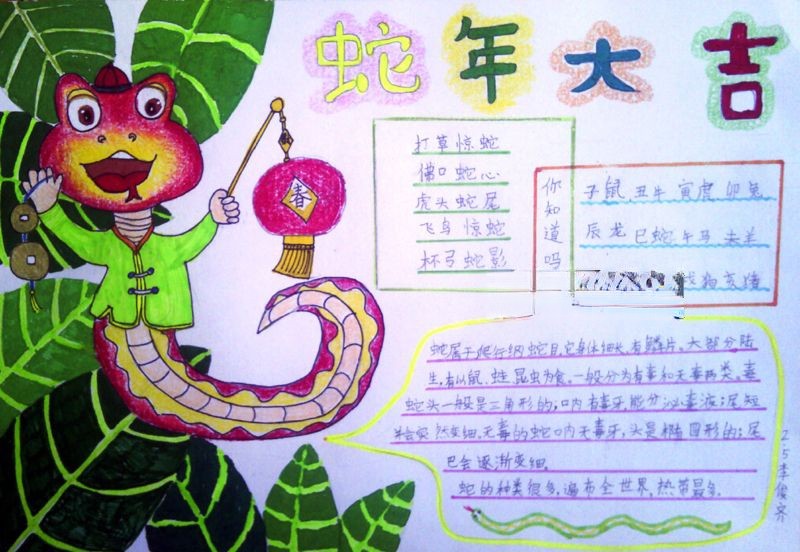 蛇年大吉
春
打草惊蛇
佛口蛇心
虎头蛇尾
飞鸟惊蛇
杯弓蛇影
你知道吗
子鼠 丑牛 寅虎 卯兔
辰龙 巳蛇 午马 未羊
戌狗 亥猪
蛇属于爬行纲蛇目,它身体细长,有鳞片。大部分陆
生,有以鼠、蛙、昆虫为食。一般分为有毒和无毒两类。毒
蛇头一般是三角形的;口内有毒牙,能分泌毒液;尾短
然变细。无毒的蛇口内无毒牙,头是椭圆形的;尾
巴会逐渐变细。
蛇的种类很多,遍布全世界,热带最多。
25李俊齐